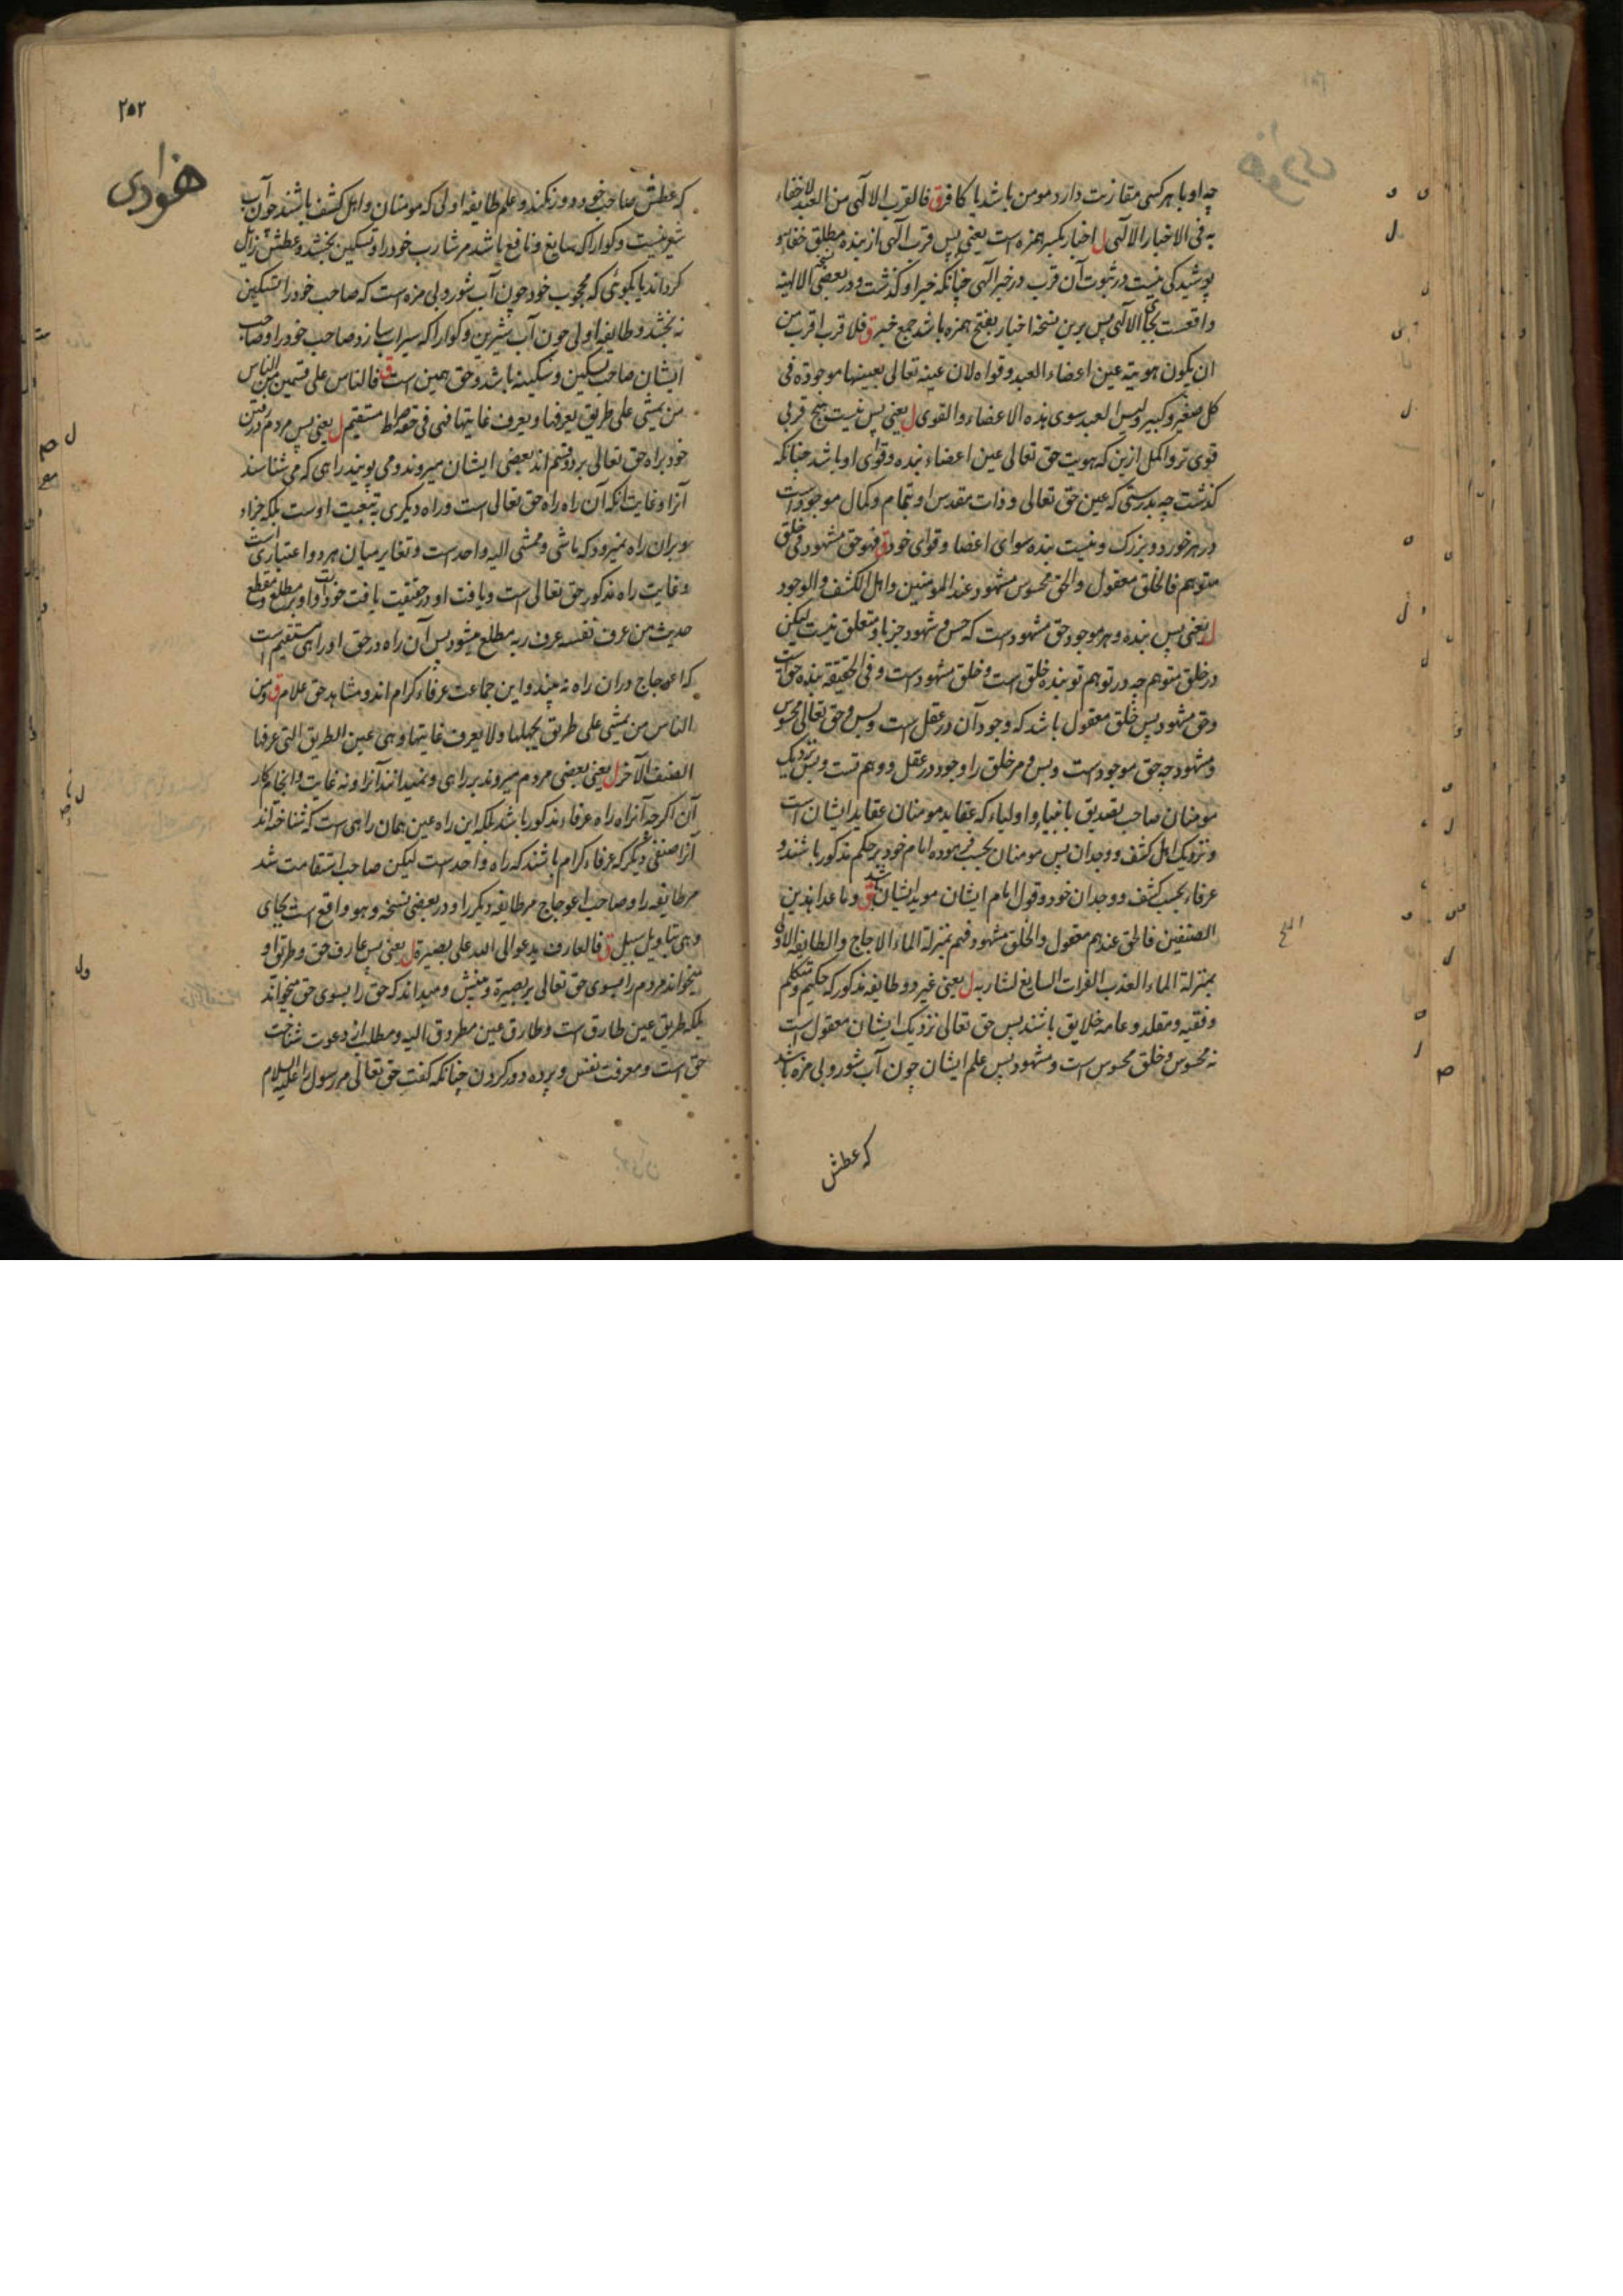 چه او با هر کسی مقارنت دارد مومن باشد یا کافر ق فالقرب الالهی من العبد لا خفاء
به فی الاخبار الالهی ل اخبار بکسر همزه است یعنی پس قرب الهی از بنده مطلق خفا و
پوشیدگی نیست در ثبوت آن قرب در خبر الهی چنانکه خبر او گذشت و در بعضی الالهیه
واقعست بجای الالهی پس برین نسخه اخبار بفتح همزه باشد جمع خبر ق فلا قرب اقرب من
ان یکون هویته عین اعضاء العبد و قواه لان عینه تعالی بعینها موجودة فی
کل صغیر و کبیر و لیس العبد سوی هذه الاعضاء و القوی ل یعنی پس نیست هیچ قربی
قوی تر و اکمل ازین که هویت حق تعالی عین اعضاء بنده و قوای او باشد چنانکه
گذشت چه بدرستی که عین حق تعالی و ذات مقدس او بتمام و کمال موجود است
در هر خورد و بزرگ و نیست بنده سوای اعضا و قوای خود ق فهو حق مشهود فی خلق
متوهم فالخلق معقول والحق محسوس مشهود عند المومنین و اهل الکشف و الوجود
ل یعنی پس بنده و هر موجود حق مشهود است که حس و شهود جز با و متعلق نیست لیکن
در خلق متوهم چه در توهم تو بنده خلق است و خلق مشهود است و فی الحقیقة بنده حق است
و حق مشهود پس خلق معقول باشد که وجود آن در عقل است و بس و حق تعالی محسوس
و مشهود چه حق موجود است و بس و مر خلق را وجود در عقل و وهم تست و بس نزدیک
مومنان صاحب تصدیق با نبیاء و اولیاء که عقاید مومنان عقاید ایشان است
و نزدیک اهل کشف و وجدان پس مومنان بحسب فرموده امام خود بر حکم مذکور باشند و
عرفاء بحسب کشف و وجدان خود و قول امام ایشان موید ایشان باشد ق و ما عدا هذین
الصنفین فالحق عندهم معقول والخلق مشهود فهم بمنزلة الماء الاجاج والطایفة الاولی
بمنزلة الماء العذب الفرات السایغ لشاربه ل یعنی غیر دو طایفه مذکور که حکیم و متکلم
و فقیه و مقلد و عامه خلایق باشند پس حق تعالی نزدیک ایشان معقول است
نه محسوس و خلق محسوس است و مشهود پس علم ایشان چون آب شور و بی مزه باشد
که عطش
۲۵۲
هودی
که عطش صاحب خود دور نکند و علم طایفه اولی که مومنان و اهل کشف باشند چون آب
شیرینست و کوارا که سایغ و نافع باشد مر شارب خود را و تسکین بخشد و عطش زایل
کرداند یا بکوئی که محجوب خود چون آب شور و بی مزه است که صاحب خود را تسکین
نه بخشد و طایفه اولی چون آب شیرین و کوارا که سیراب سازد صاحب خود را و صاحب
ایشان صاحب تسکین و سکینه باشد و حق همین است ق فالناس علی قسمین من الناس
من یمشی علی طریق یعرفها و یعرف غایتها فهی فی حقه صراط مستقیم ل یعنی پس مردم در رفتن
خود براه حق تعالی بر دو قسم اند بعضی ایشان میروند و می پویند راهی که می شناسند
آنرا و غایت آنکه آن راه راه حق تعالی است و راه دیگری به تبعیت اوست بلکه جزاء
و بران راه نمیرود که ماشی و ممشی الیه واحد است و تغایر میان هر دو اعتباری است
و غایت راه مذکور حق تعالی است و یافت او در حقیقت یافت خود است و او بر مطلع و مقطع
حدیث من عرف نفسه عرف ربه مطلع میشود پس آن راه در حق او راهی مستقیم است
که اعوجاج دران راه نه بیند و این جماعت عرفاء کرام اند و مشاهد حق علام ق و من
الناس من یمشی علی طریق یجهلها و لا یعرف غایتها و هی عین الطریق التی عرفها
الصنف الآخر ل یعنی بعضی مردم میروند بر راهی و نمیدانند آنرا و نه غایت و انجام کار
آن اگرچه آن راه راه عرفاء مذکور باشد بلکه این راه عین همان راهی است که شناخته اند
آنرا صنفی دیگر که عرفاء کرام باشند که راه واحد است لیکن صاحب استقامت شد
مر طایفه را و صاحب اعوجاج مر طایفه دیگر را و در بعضی نسخه و هو واقع است بجای
و هی بتاویل سبیل ق فالعارف یدعو الی الله علی بصیرة ل یعنی پس عارف حق و طرق او
میخواند مردم را بسوی حق تعالی بر بصیرة و بینش و میداند که حق را بسوی حق میخواند
بلکه طریق عین طارق است و طارق عین مطروق الیه و مطلب از دعوت شناخت
حق است و معرفت نفس و پرده دور کردن چنانکه گفت حق تعالی مر رسول را علیه السلام